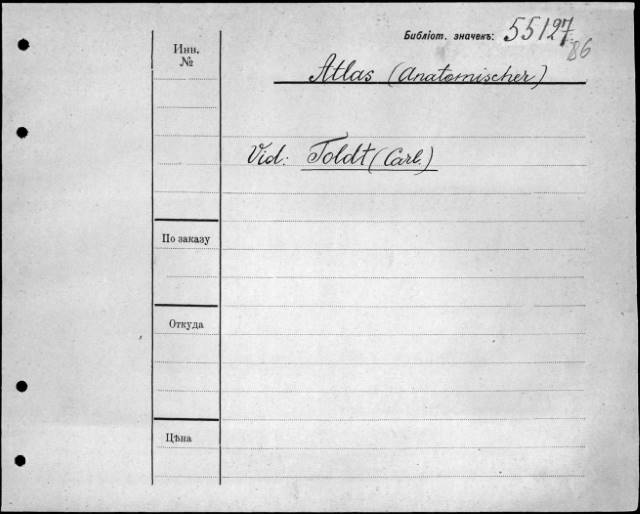 Библіот. значекъ: 55127
86
Инв.
№
Atlas (Anatomischer)
Vid: Toldt (Carl.)
По заказу
Откуда
Цѣна